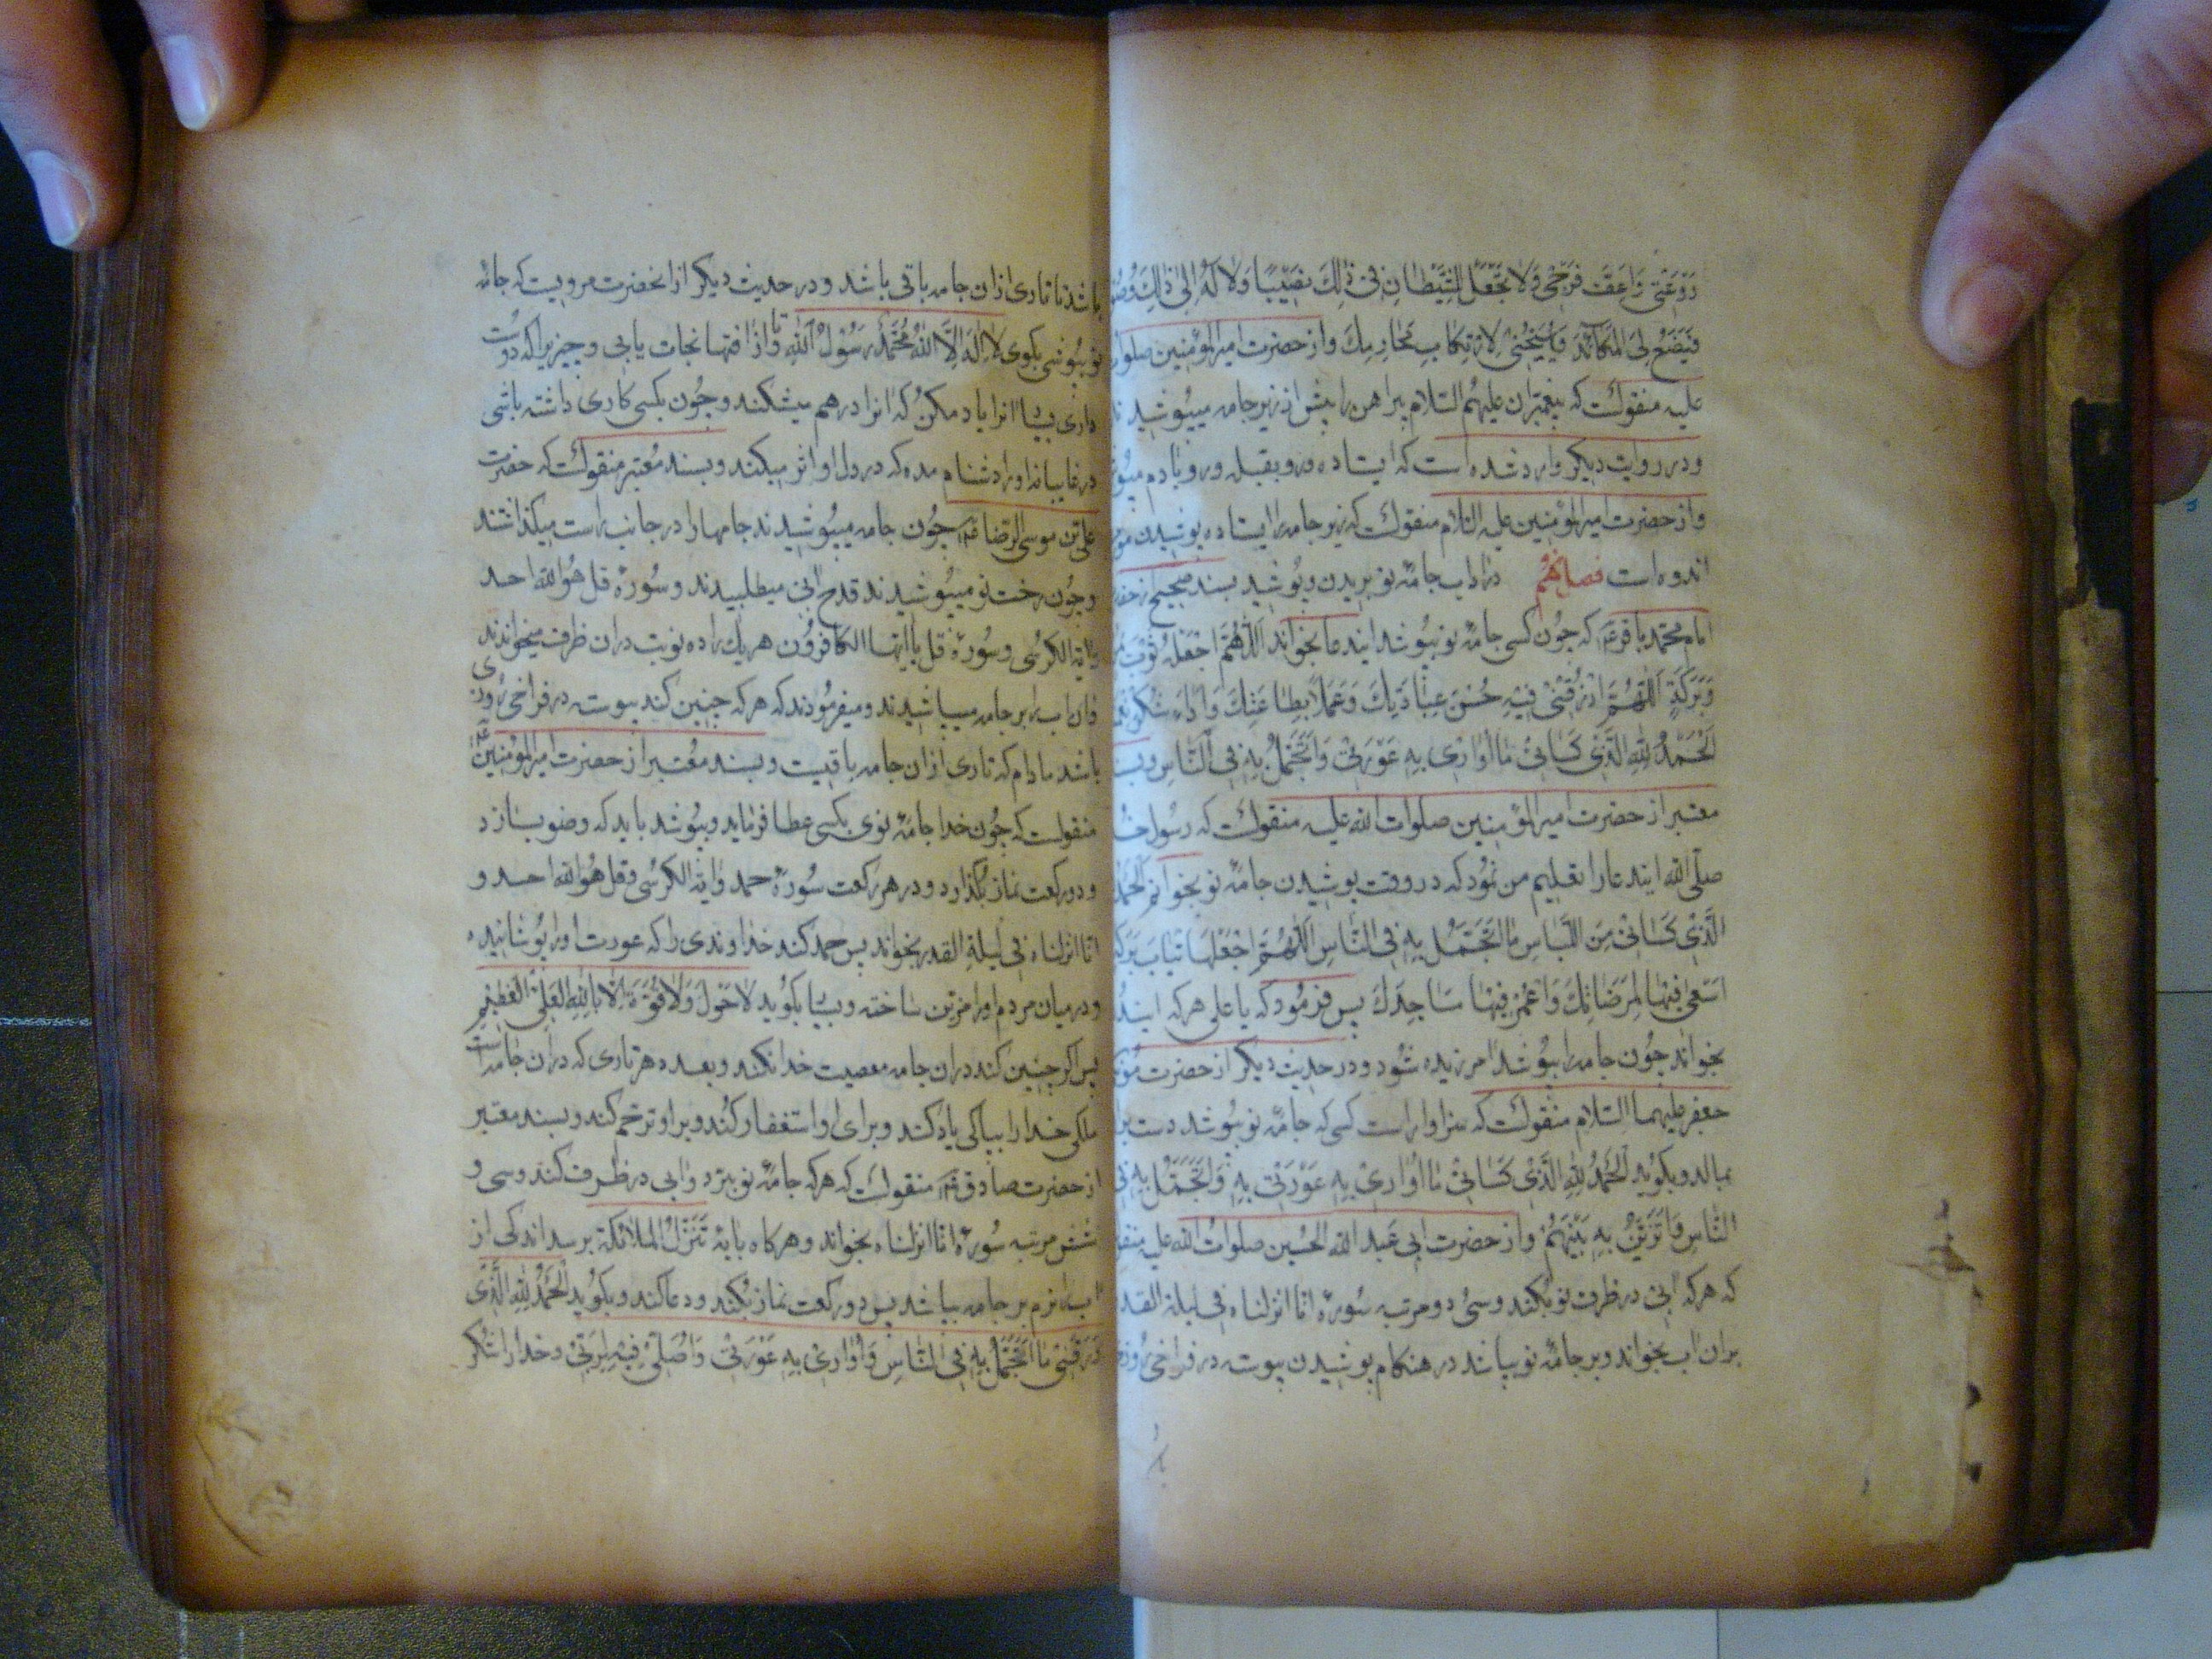 رَوْعَتِی وَاَعِفَّ فَرْجِی وَلَا تَجْعَلْ لِلشَّیْطَانِ فِی ذٰلِكَ نَصِیْبًا وَلَا لَهُ اِلیٰ ذٰلِكَ
فَیَضَعُ لِیَ الْمَكَائِدَ وَیُهَیِّجُنِی لِاِرْتِكَابِ مَحَارِمِكَ واز حضرت امیرالمؤمنین صلوات
علیه منقولست که پیغمبران علیهم السلام پیراهن را پیش از زیر جامه میپوشید
ودر روایت دیکر وارد شده است که ایستاده و رو بقبله و رو بادم
واز حضرت امیرالمؤمنین علیه السلام منقولست که زیر جامه را ایستاده پوشیدن
اندوه است فصل نهم در اداب جامهٔ نو بریدن و پوشید بسند صحیح از
امام محمد باقر ع که چون کسی جامهٔ نو بپوشد ایندعا بخواند اَللّٰهُمَّ اجْعَلْهُ ثَوْبَ
وَبَرَكَةٍ اَللّٰهُمَّ ارْزُقْنِی فِیْهِ حُسْنَ عِبَادَتِكَ وَعَمَلًا بِطَاعَتِكَ وَاَدَاءَ شُكْرِ
اَلْحَمْدُ لِلّٰهِ الَّذِی كَسَانِی مَا اُوَارِی بِهِ عَوْرَتِی وَاَتَجَمَّلُ بِهِ فِی النَّاسِ
معتبر از حضرت امیرالمؤمنین صلوات الله علیه منقولست که رسول
صلی الله ایندعا را تعلیم من نمود که در وقت پوشیدن جامهٔ نو بخوانم
الَّذِی كَسَانِی مِنَ اللِّبَاسِ مَا اَتَجَمَّلُ بِهِ فِی النَّاسِ اَللّٰهُمَّ اجْعَلْهَا ثِیَابَ
اَسْعٰی فِیْهَا لِمَرْضَاتِكَ وَاَعْمُرُ فِیْهَا مَسَاجِدَكَ پس فرمود که یا علی هرکه
بخواند چون جامه را بپوشد امرزیده شود و در حدیث دیکر از حضرت
جعفر علیهما السلام منقولست که سزاوار است کسی که جامهٔ نو بپوشد دست
بمالد و بکوید اَلْحَمْدُ لِلّٰهِ الَّذِی كَسَانِی مَا اُوَارِی بِهِ عَوْرَتِی وَاَتَجَمَّلُ بِهِ
النَّاسِ وَاَتَزَیَّنُ بِهِ بَیْنَهُمْ واز حضرت ابی عبد الله الحسین صلوات الله علیه
که هرکه ابی در ظرف نو بکند وسی و دو مرتبه سورهٔ انا انزلناه فی لیلة
بران اب بخواند وبر جامهٔ نو بپاشد در هنکام پوشیدن پیوسته در فراخی
باشد تا تاری ازان جامه باقی باشد و در حدیث دیکر از انحضرت مرویست که جامهٔ
نو بپوشی بکوی لَا اِلٰهَ اِلَّا اللهُ مُحَمَّدٌ رَسُوْلُ اللهِ تا از افتها نجات یابی و چیزیرا که دوست
داری بسیار انرا یاد مکن که انرا درهم میشکند و چون بکسی کاری داشته باشی
در غایبانه او را دشنام مده که در دل او اثر میکند و بسند معتبر منقولست که حضرت
علی بن موسی الرضا ع چون جامه میپوشیدند جامها را در جانب راست میکذاشتند
وچون رخت نو میپوشیدند قدح ابی میطلبیدند وسورهٔ قل هو الله احد
وایة الکرسی وسورهٔ قل یا ایها الکافرون هریك را ده نوبت دران ظرف میخواندند
وان اب را بر جامه میپاشیدند و میفرمودند که هرکه چنین کند پیوسته در فراخی روزی
باشد مادام که تاری ازان جامه باقیست و بسند معتبر از حضرت امیرالمؤمنین ع
منقولست که چون خدا جامهٔ نوی بکسی عطا فرماید و بپوشد باید که وضو بسازد
و دو رکعت نماز بکذارد و در هر رکعت سورهٔ حمد وایة الکرسی وقل هو الله احد و
انا انزلناه فی لیلة القدر بخواند پس حمد کند خداوندی را که عورت او را پوشانیده
و در میان مردم او را مزین ساخته و بسیار بکوید لَا حَوْلَ وَلَا قُوَّةَ اِلَّا بِاللهِ الْعَلِیِّ الْعَظِیْمِ
پس اکر چنین کند دران جامه معصیت خدا نکند و بعدد هر تاری که دران جامه است
ملکی خدا را بپاکی یاد کند و برای او استغفار کند و بر او ترحم کند و بسند معتبر
از حضرت صادق ع منقولست که هرکه جامهٔ نو ببرد وابی در ظرف کند وسی و
شش مرتبه سورهٔ انا انزلناه بخواند و هرکاه بایهٔ تَنَزَّلُ الملائکة برسد اندکی از
اب را نرم بر جامه بپاشد پس دو رکعت نماز بکند و دعا کند و بکوید اَلْحَمْدُ لِلّٰهِ الَّذِی
رَزَقَنِی مَا اَتَجَمَّلُ بِهِ فِی النَّاسِ وَاُوَارِی بِهِ عَوْرَتِی وَاُصَلِّی فِیْهِ لِرَبِّی وخدا را شکر